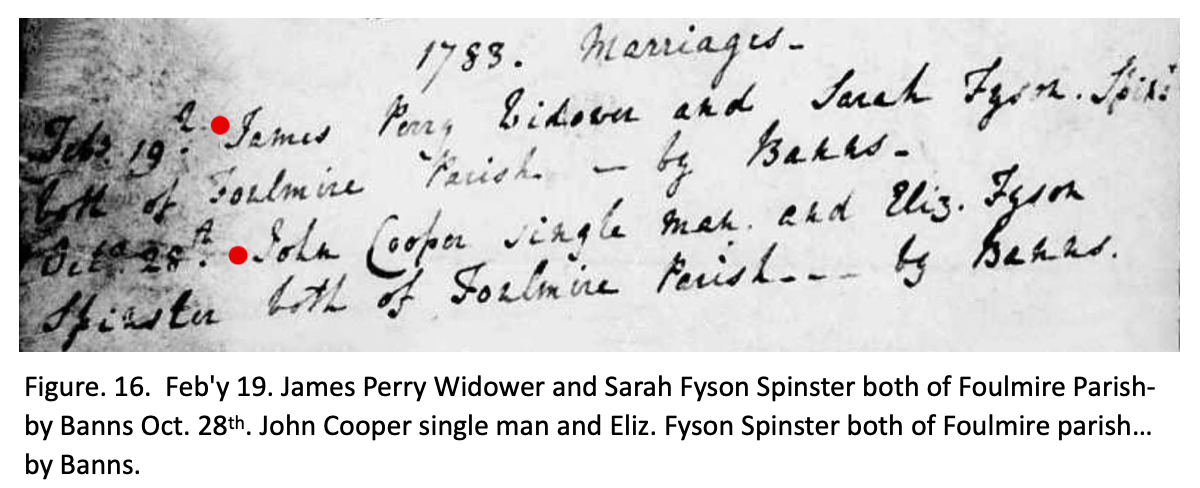 1783. Marriages-
Feby 19th. James Perry Widower and Sarah Fyson. Spinr
both of Foulmire Parish - by Banns-
Octr 28th. John Cooper single man. and Eliz. Fyson
Spinster both of Foulmire Parish--- by Banns.
Figure. 16. Feb'y 19. James Perry Widower and Sarah Fyson Spinster both of Foulmire Parish-
by Banns Oct. 28th. John Cooper single man and Eliz. Fyson Spinster both of Foulmire parish...
by Banns.